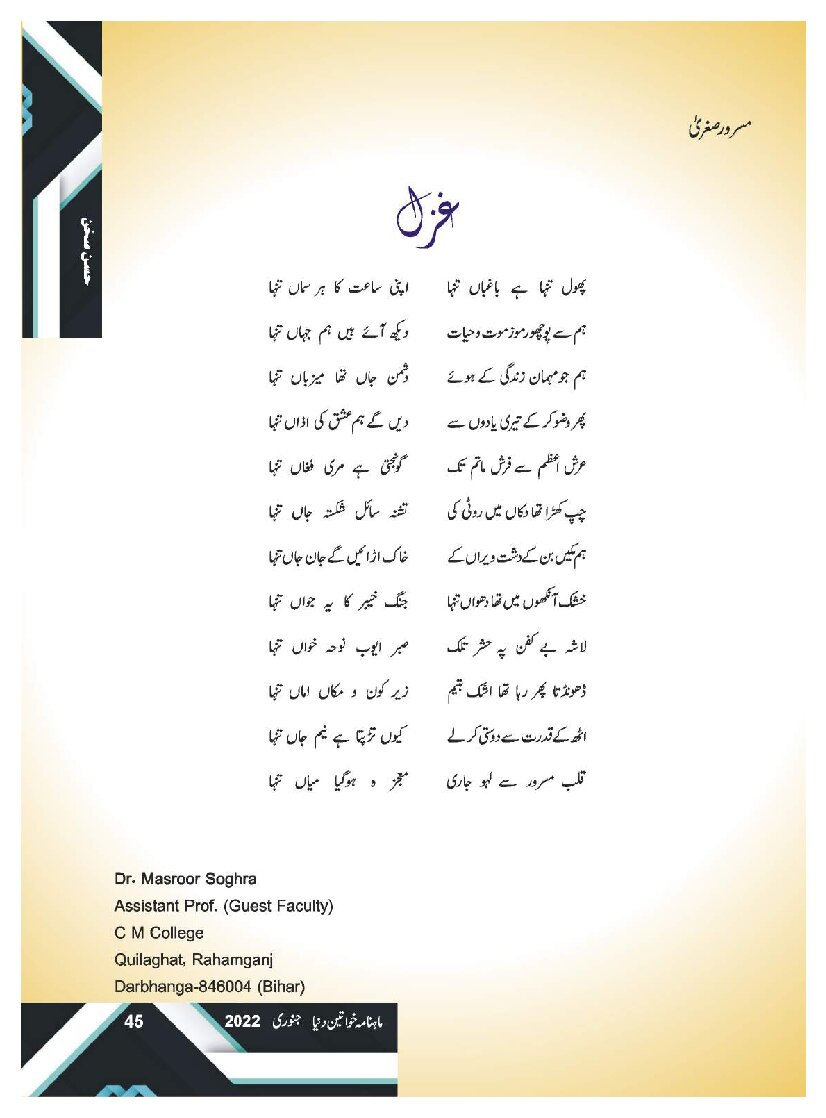 مسرور صغریٰ
حسن سخن
غزل
پھول تنہا ہے باغباں تنہا اپنی ساعت کا ہر سماں تنہا
ہم سے پوچھو رموز موت و حیات دیکھ آئے ہیں ہم جہاں تنہا
ہم جو مہمان زندگی کے ہوئے دشمن جاں تھا میزباں تنہا
پھر وضو کر کے تیری یادوں سے دیں گے ہم عشق کی اذاں تنہا
عرش اعظم سے فرش ماتم تک گونجتی ہے مری فغاں تنہا
چپ کھڑا تھا دکاں میں روٹی کی تشنہ سائل شکستہ جاں تنہا
ہم مکیں بن کے دشت ویراں کے خاک اڑائیں گے جان جاں تنہا
خشک آنکھوں میں تھا دھواں تنہا جنگ خیبر کا یہ جواں تنہا
لاشہ بے کفن پہ حشر تلک صبر ایوب نوحہ خواں تنہا
ڈھونڈتا پھر رہا تھا اشک یتیم زیر کون و مکاں اماں تنہا
اٹھ کے قدرت سے دوستی کر لے کیوں تڑپتا ہے نیم جاں تنہا
قلب مسرور سے لہو جاری معجز ہ ہوگیا میاں تنہا
Dr. Masroor Soghra
Assistant Prof. (Guest Faculty)
C M College
Quilaghat, Rahamganj
Darbhanga-846004 (Bihar)
ماہنامہ خواتین دنیا جنوری 2022 45